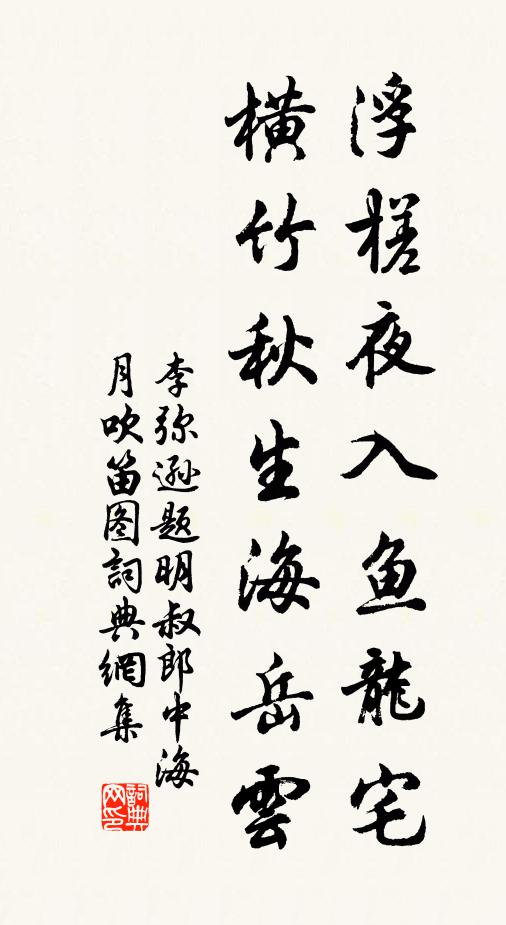 浮槎夜入鱼龍宅
横竹秋生海岳雲
李弥遜题明叔郎中海
月吹笛图詞典網集
詞典网印